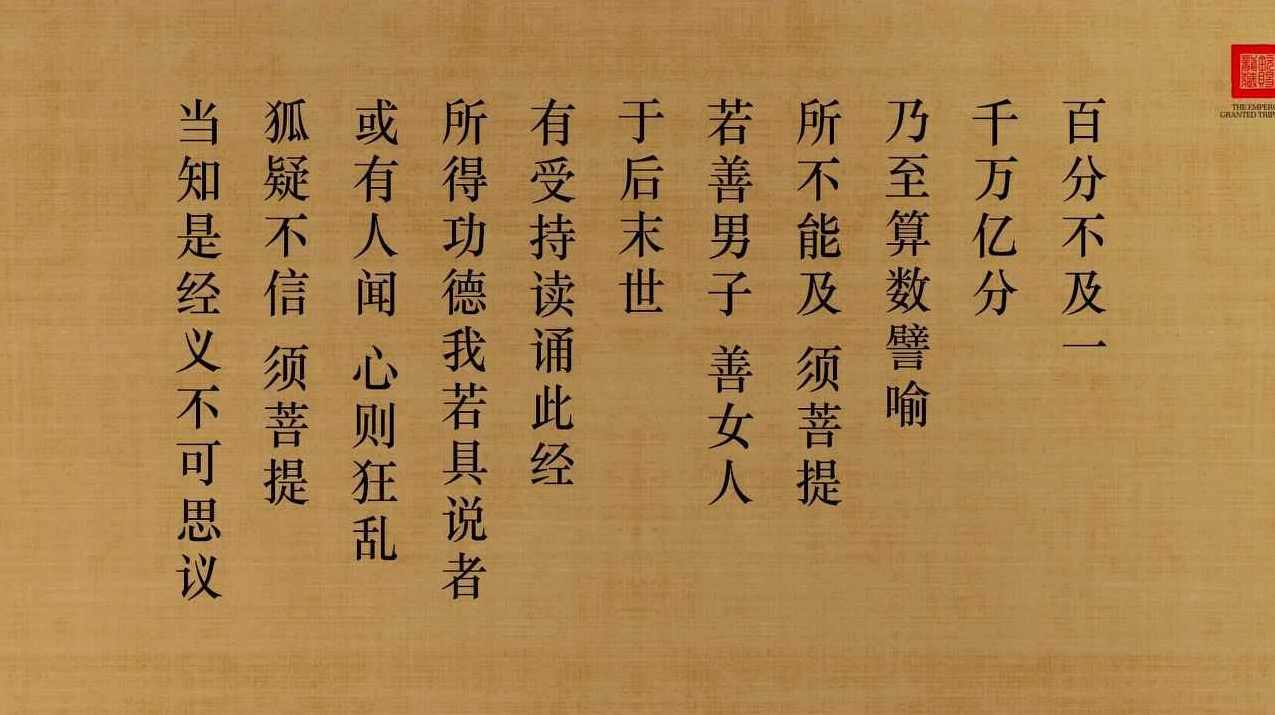 百分不及一
千万亿分
乃至算数譬喻
所不能及 须菩提
若善男子 善女人
于后末世
有受持读诵此经
所得功德我若具说者
或有人闻 心则狂乱
狐疑不信 须菩提
当知是经义不可思议
THE EMPERO
GRANTED TRI